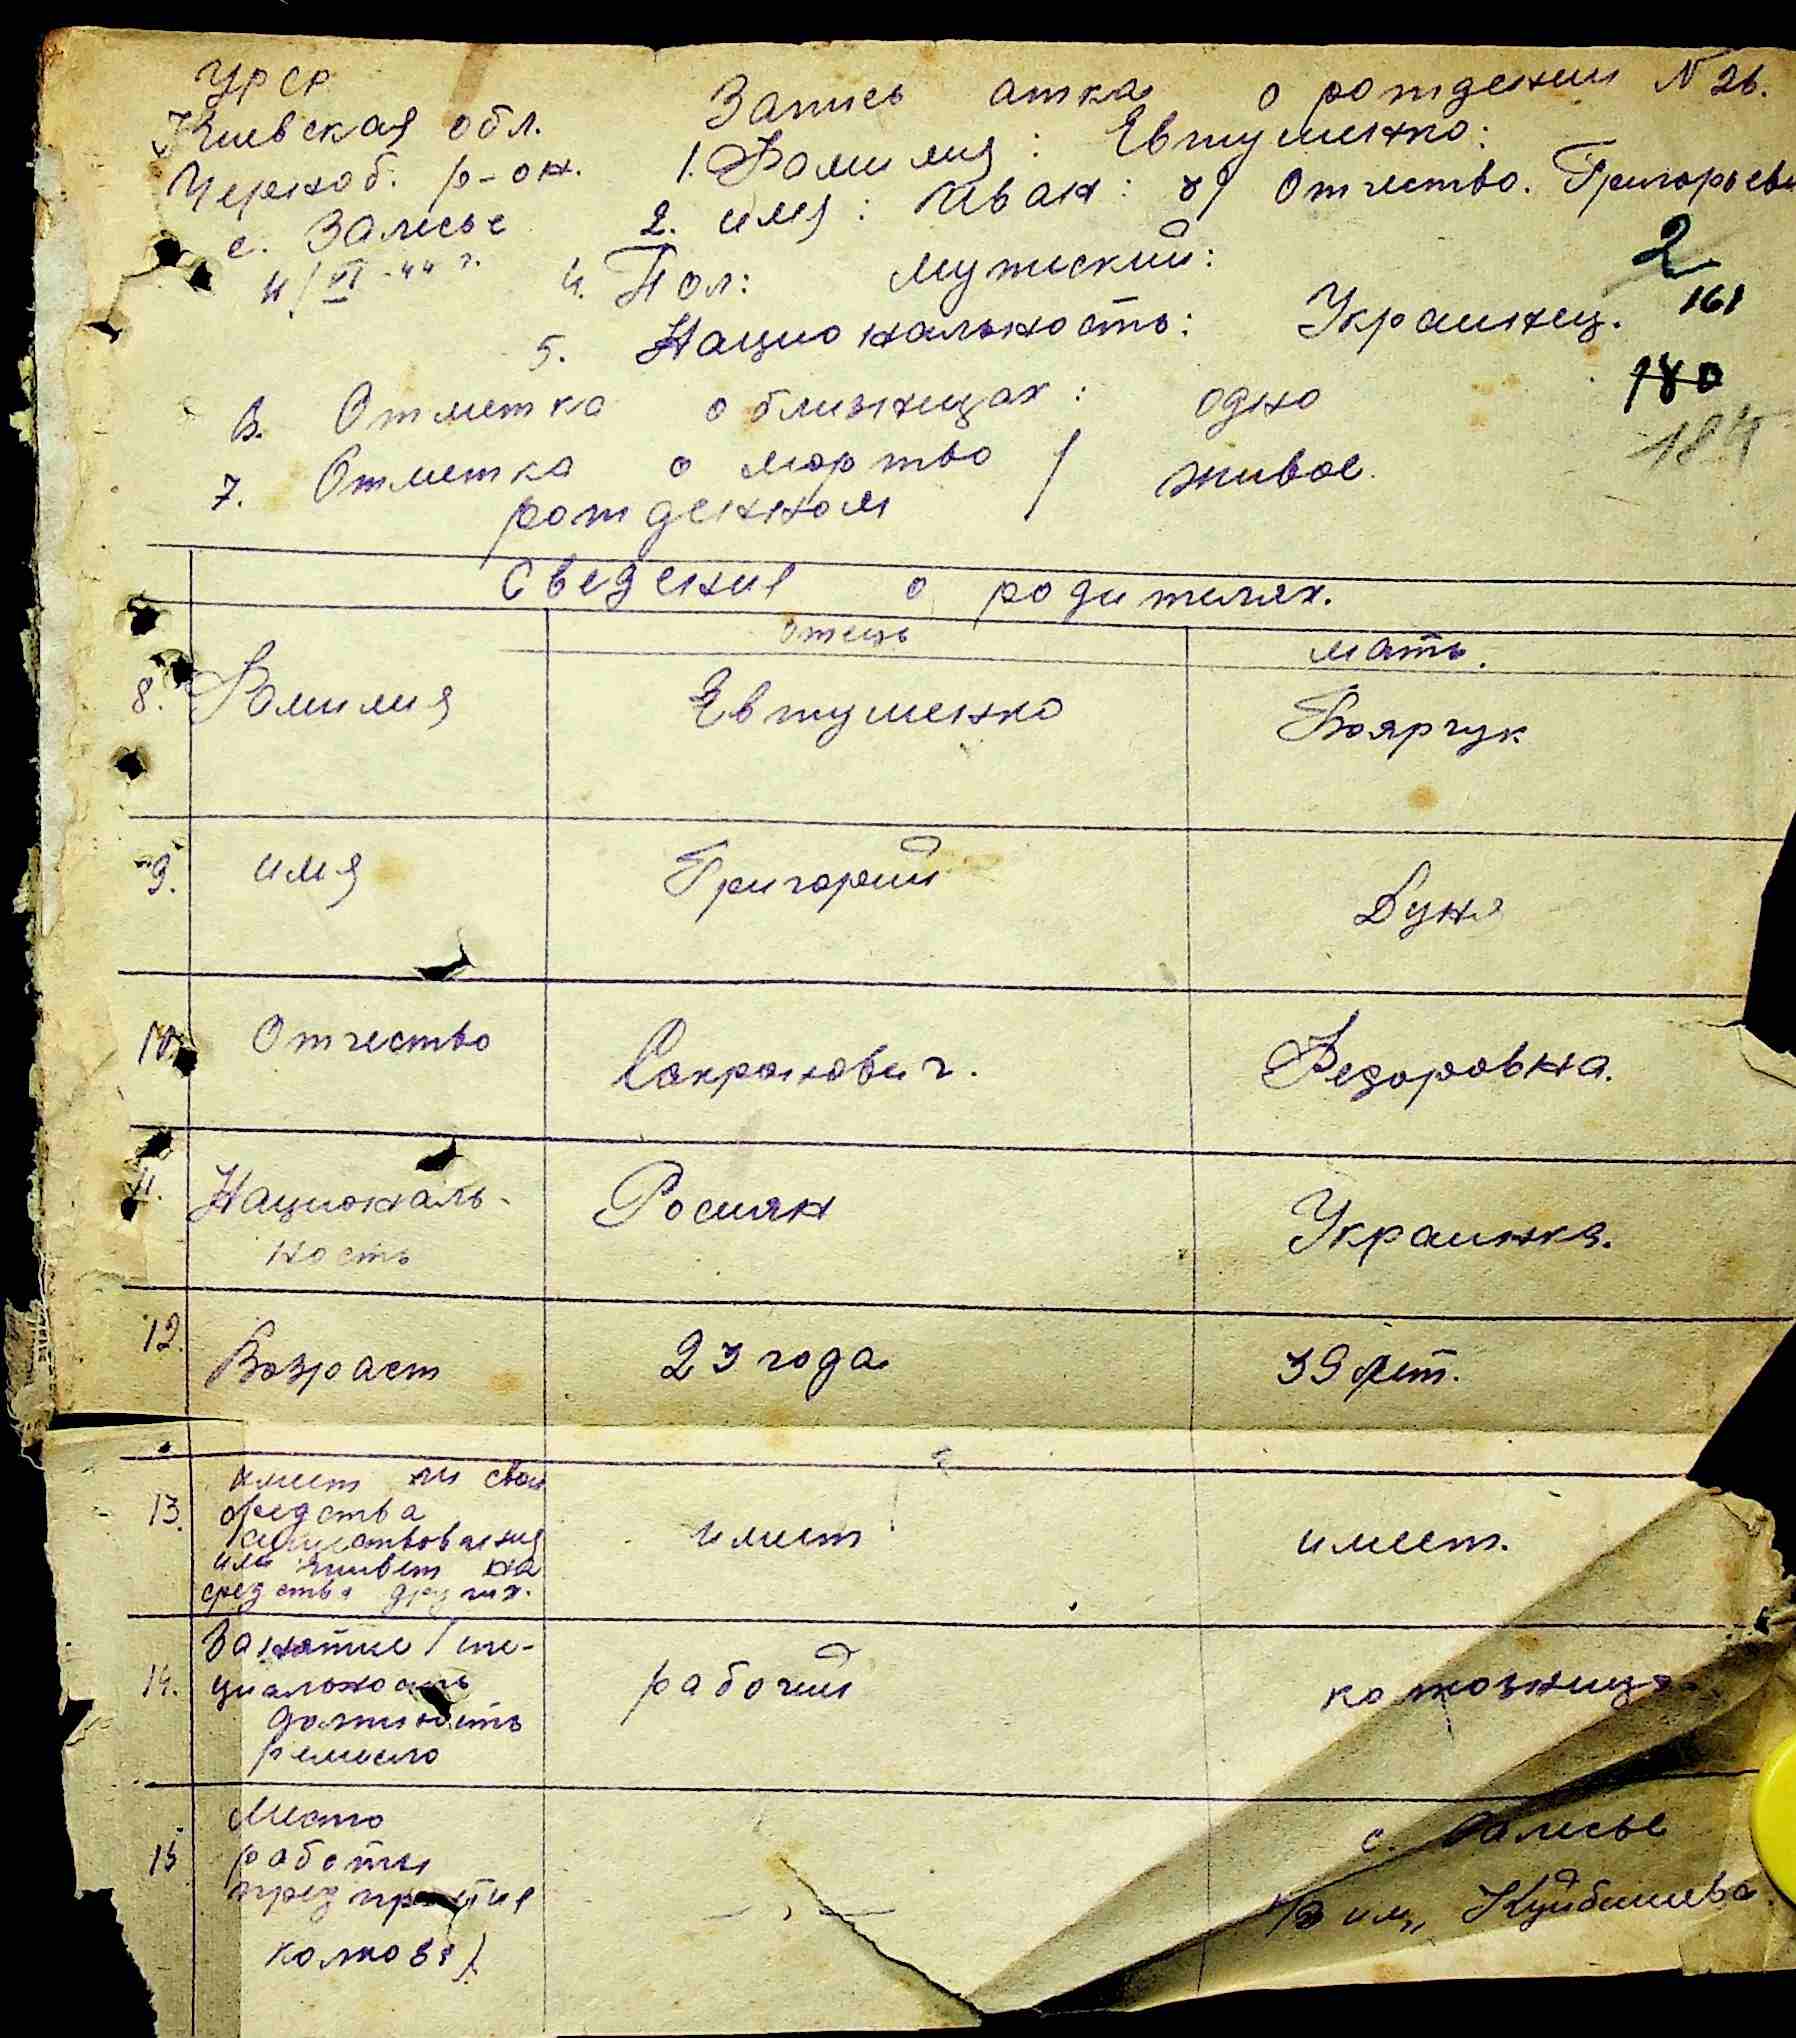 УРСР
Киевская обл.
Черноб. р-он.
с. Залесье
4/VI-44 г.
Запись акта о рождении N 26.
1. Фамилия: Евтушенко:
2. имя: Иван: 3/ Отчество. Григорьеви
4. Пол: мужиский:
5. Национальность: Украинец.
2
161
180
184
6. Отметка о близнецах: одно
7. Отметка о мертво / живое.
рожденном
Сведения о родителях.
отець мать.
8. Фамилия Евтушенко Боярчук
9. имя Григорий Дуня
10. Отчество Сакронович. Федоровна.
11. Националь- Росиян Украинка.
ность
12. Возраст 23 года 39 лет.
13. имеет ли свои
средства
существования
или живет на
средства других.
имеет имеет.
14. Занятие / спе-
циальность
должность
ремесло
рабочий колхозница
15 Место
работы
предприятие
колхоз /.
— , —
с. Залесье
к/з им. Куйбишева.